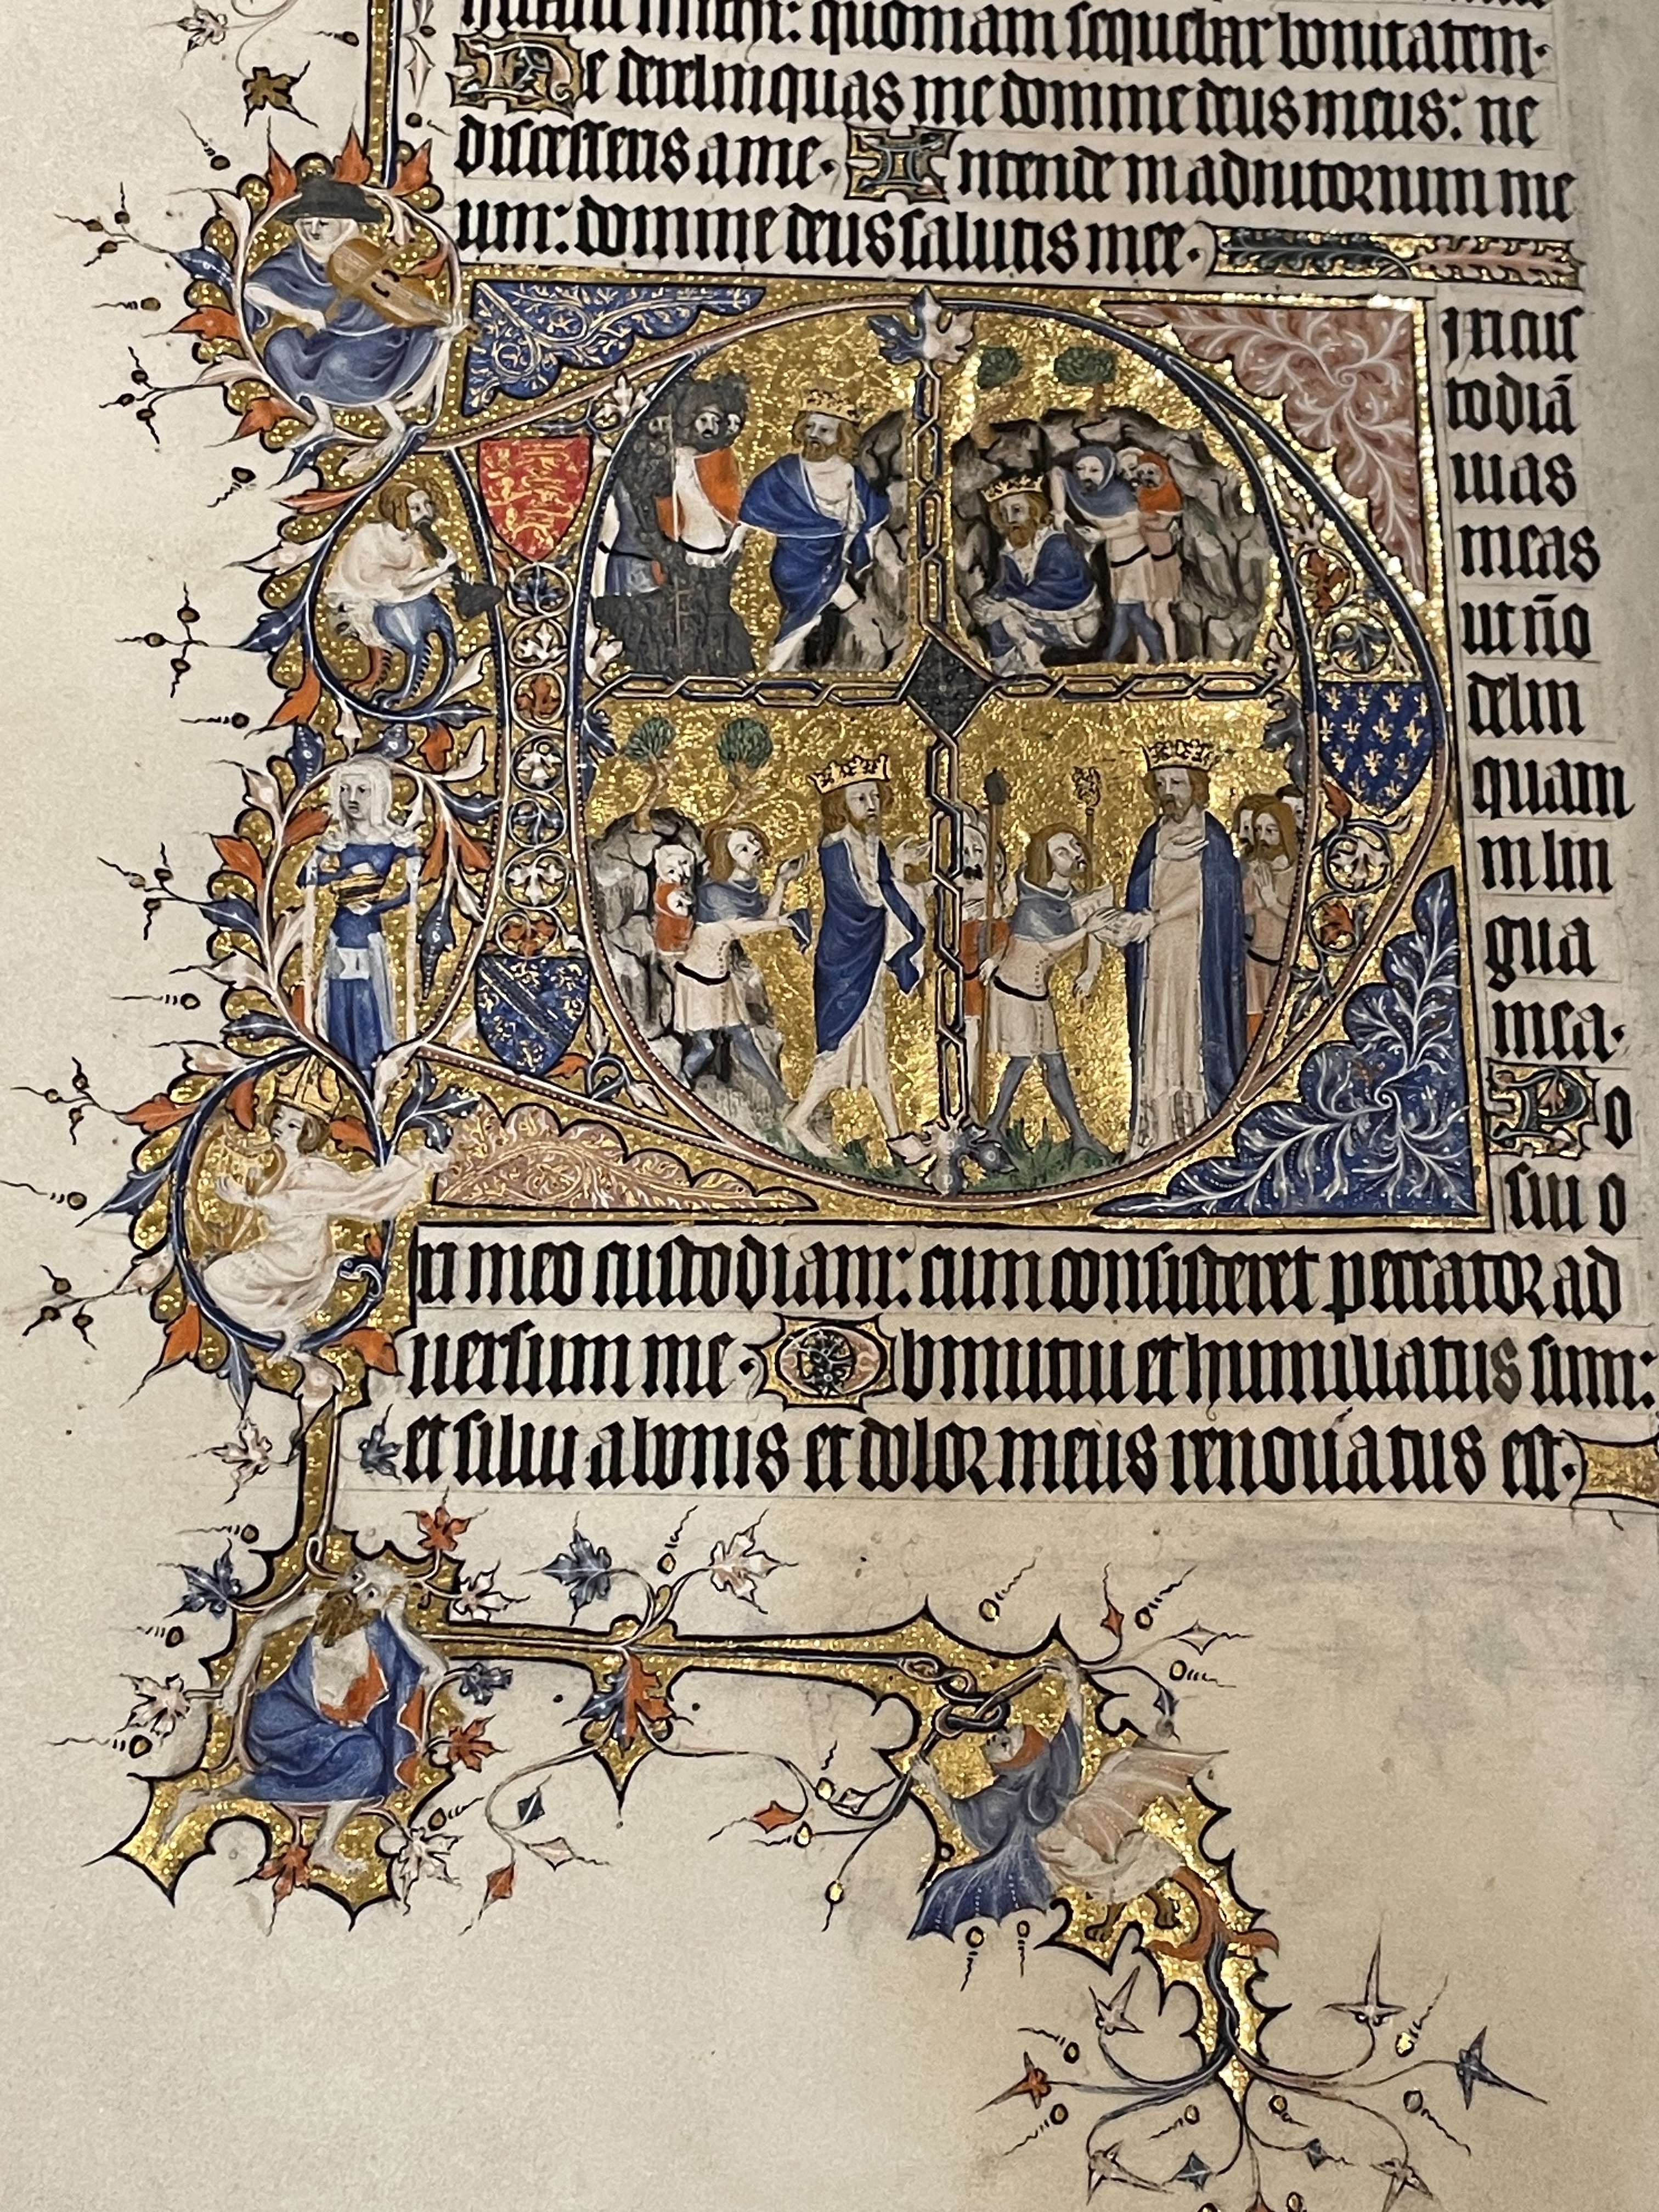 michi: quoniam sequebar bonitatem.
Ne derelinquas me domine deus meus: ne
discesseris a me. Intende in adiutorium me
um: domine deus salutis mee.
Dixi cus
todiā
uias
meas
ut nō
delin
quam
in lin
gua
mea.
Po
sui o
ri meo custodiam: cum consisteret peccator ad
uersum me. Obmutui et humiliatus sum:
et silui a bonis et dolor meus renouatus est.